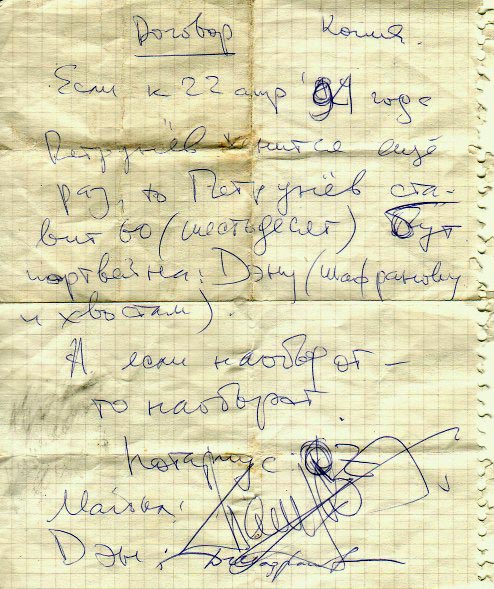 Договор Копия.
Если к 22 апр '91 года
Петрунёв женится ещё
раз, то Петрунёв ста-
вит 60 (шестьдесят) бут.
портвейна: Дэну (Шафранову
и хвостам).
А если наоборот –
то наоборот.
Нотариус
Майкл:
Дэн: